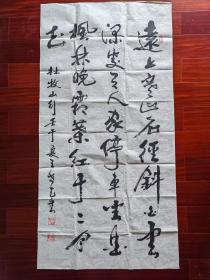 遠上寒山石径斜白雲
深處有人家停車坐愛
楓林晚霜葉紅于二月
花 杜牧山行